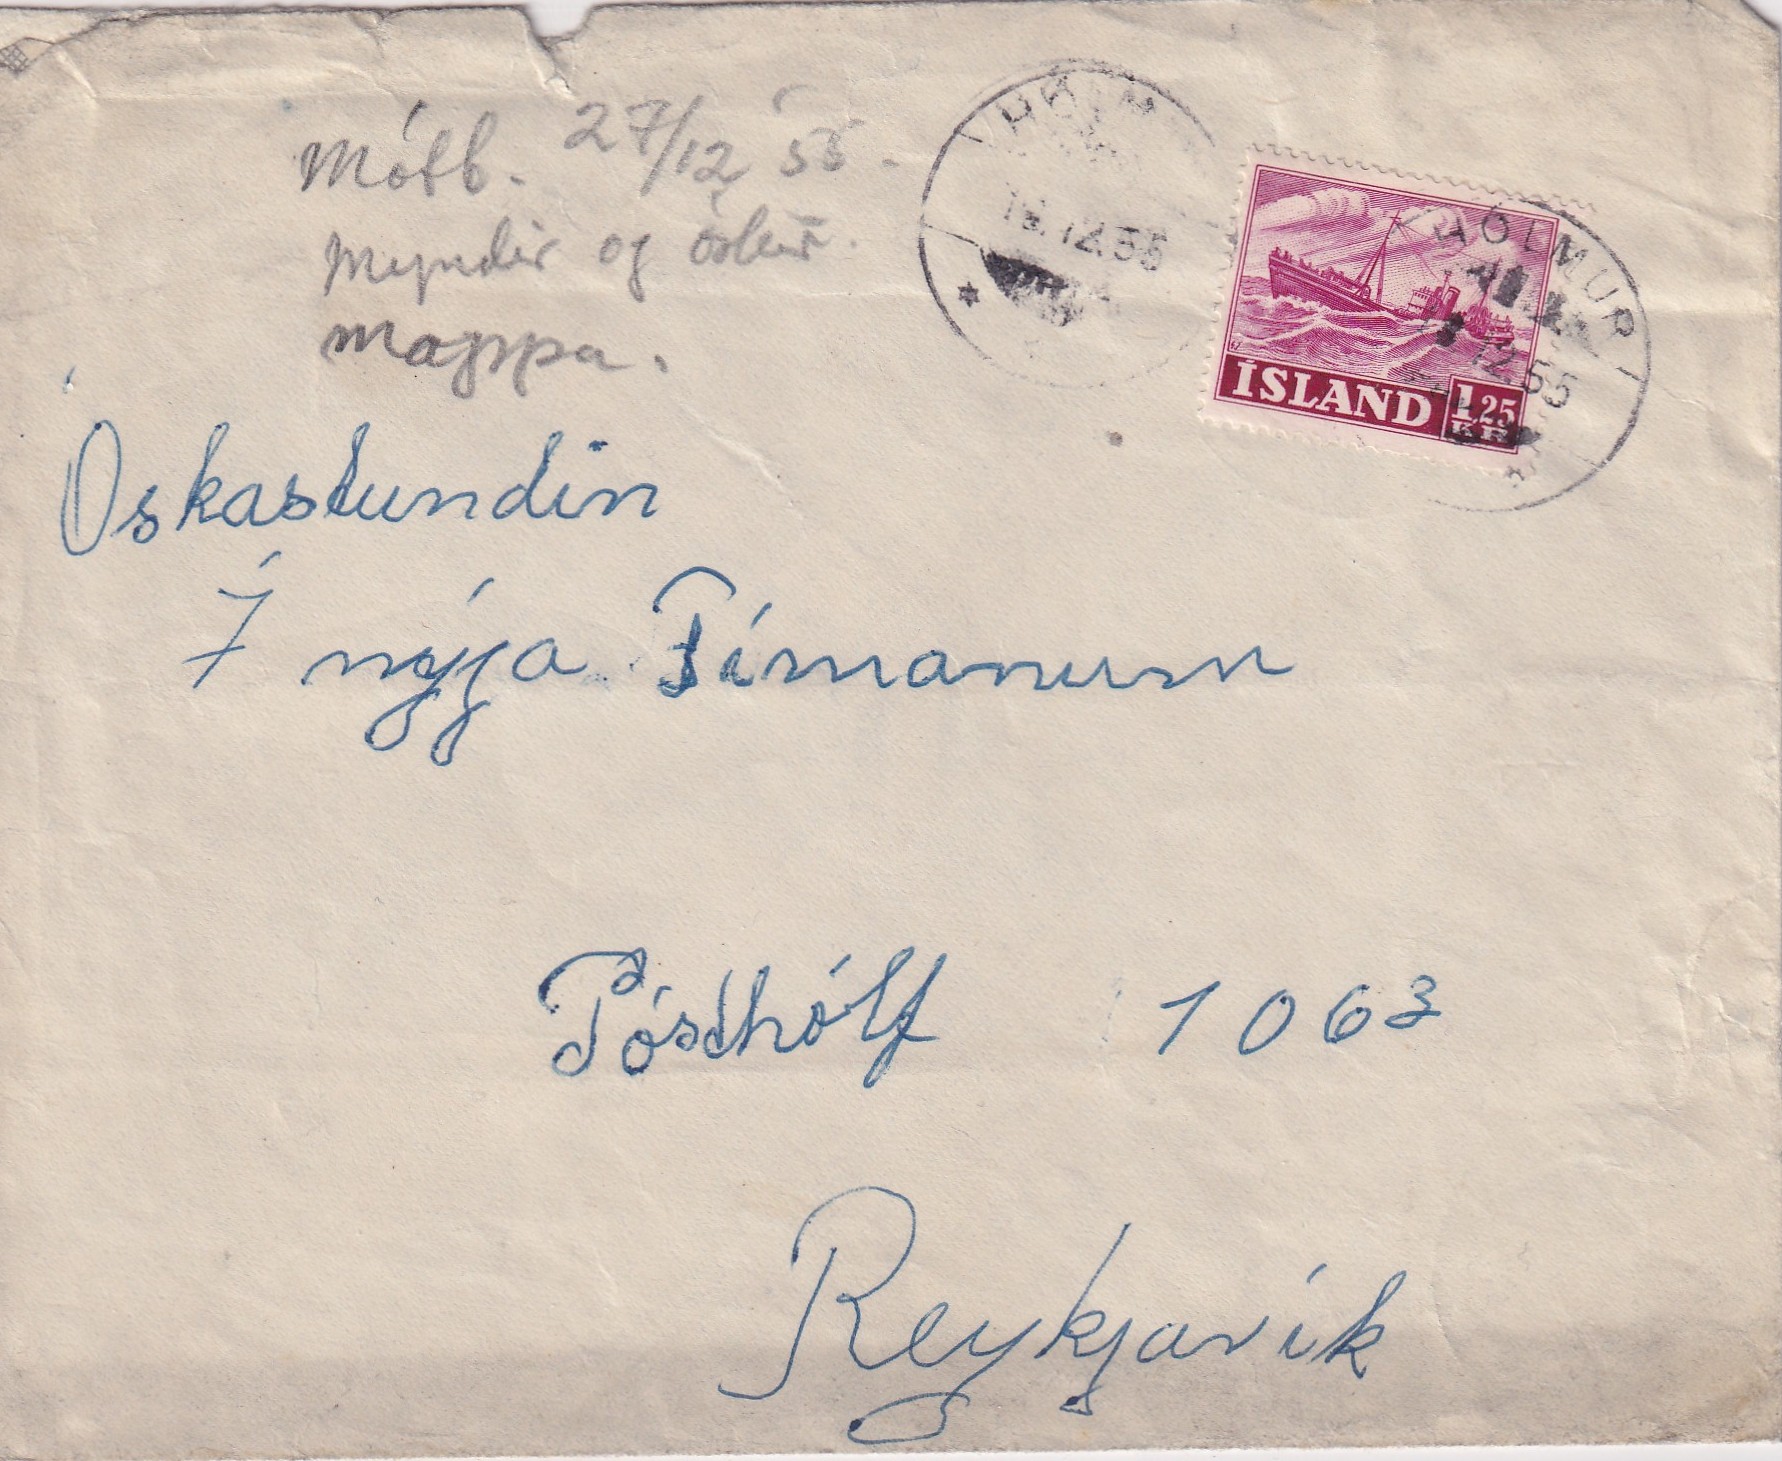 Mótt. 27/12 '55.
Myndir og
mappa.
HOLMUR
12.55
12.55
ÍSLAND 1,25
KR
Óskastundin
Í nýja Tímanum
Pósthólf 1063
Reykjavík